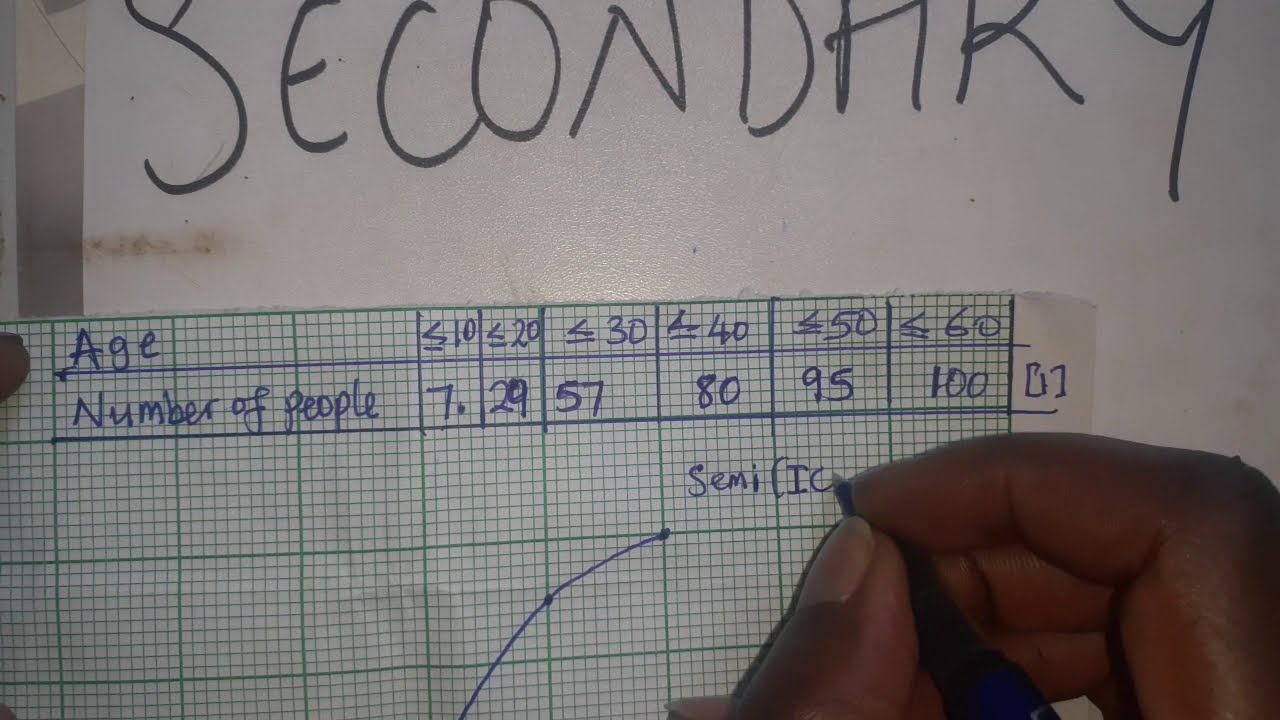 SECONDARY
Age ≤10 ≤20 ≤30 ≤40 ≤50 ≤60
Number of people 7. 29 57 80 95 100 [1]
Semi (IC